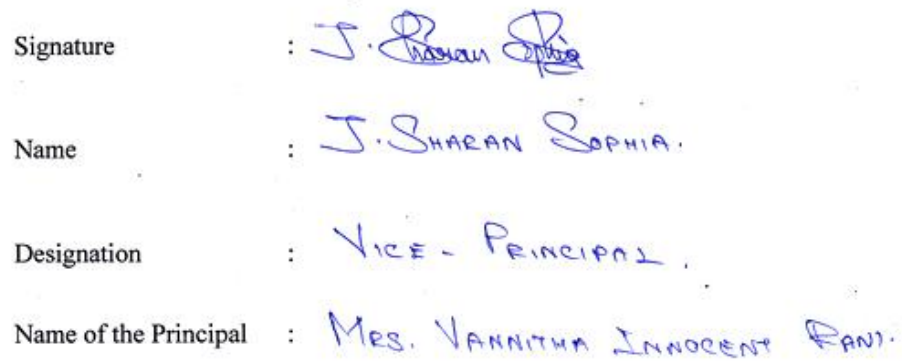 Signature : J. Sharan Sophia
Name : J. SHARAN SOPHIA.
Designation : VICE - PRINCIPAL.
Name of the Principal : MRS. VANNITHA INNOCENT RANI.